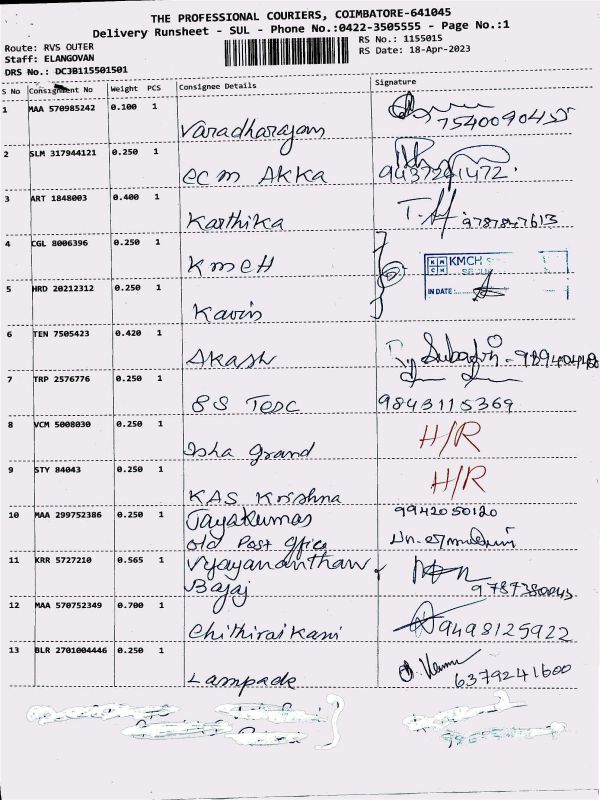 THE PROFESSIONAL COURIERS, COIMBATORE-641045
Delivery Runsheet - SUL - Phone No.:0422-3505555 - Page No.:1
Route: RVS OUTER
RS No.: 1155015
Staff: ELANGOVAN
RS Date: 18-Apr-2023
DRS No.: DCJB115501501
S No Consignment No Weight PCS Consignee Details Signature
1 MAA 570985242 0.100 1
Varadharajam 7540090455
2 SLM 317944121 0.250 1
ecm AKKA 9437291472
3 ART 1848003 0.400 1
Karthika 9787847613
4 CGL 8006396 0.250 1
KMCH
KMCH
IN DATE:
5 HRD 20212312 0.250 1
Kavin
6 TEN 7505423 0.420 1
Akash
7 TRP 2576776 0.250 1
8S Tesc 9843115369
8 VCM 5008030 0.250 1 H/R
Isha Grand
9 STY 84043 0.250 1 H/R
KAS Krishna
10 MAA 299752386 0.250 1 Jayakumar 9942050120
old Post Office
11 KRR 5727210 0.565 1 Vijayananthan
Bajaj 9787380043
12 MAA 570752349 0.700 1
Chithiraikani 9498125922
13 BLR 2701004446 0.250 1
Lampade 6379241600